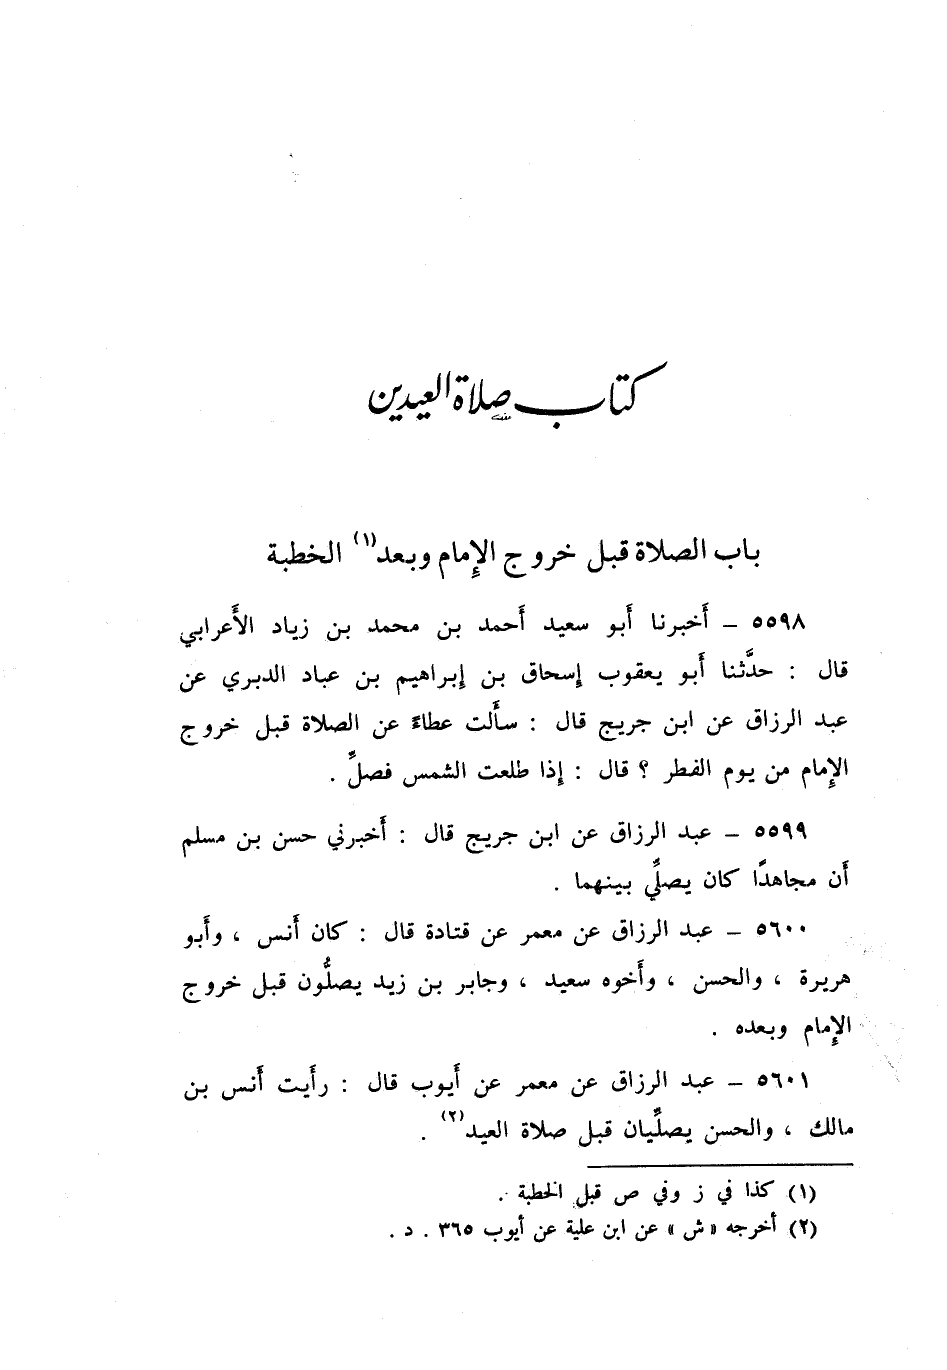 كتاب صلاة العيدين
باب الصلاة قبل خروج الإمام وبعد(١) الخطبة
٥٥٩٨ ـ أَخبرنا أَبو سعيد أَحمد بن محمد بن زياد الأَعرابي
قال : حدَّثنا أَبو يعقوب إسحاق بن إبراهيم بن عباد الدبري عن
عبد الرزاق عن ابن جريج قال : سأَلت عطاءً عن الصلاة قبل خروج
الإمام من يوم الفطر ؟ قال : إذا طلعت الشمس فصلِّ .
٥٥٩٩ ـ عبد الرزاق عن ابن جريج قال : أَخبرني حسن بن مسلم
أَن مجاهدًا كان يصلِّي بينهما .
٥٦٠٠ ـ عبد الرزاق عن معمر عن قتادة قال : كان أَنس ، وأَبو
هريرة ، والحسن ، وأَخوه سعيد ، وجابر بن زيد يصلُّون قبل خروج
الإمام وبعده .
٥٦٠١ ـ عبد الرزاق عن معمر عن أَيوب قال : رأَيت أَنس بن
مالك ، والحسن يصلِّيان قبل صلاة العيد(٢) .
(١) كذا في ز وفي ص قبل الخطبة .
(٢) أخرجه «ش» عن ابن علية عن أيوب ٣٦٥ . د .